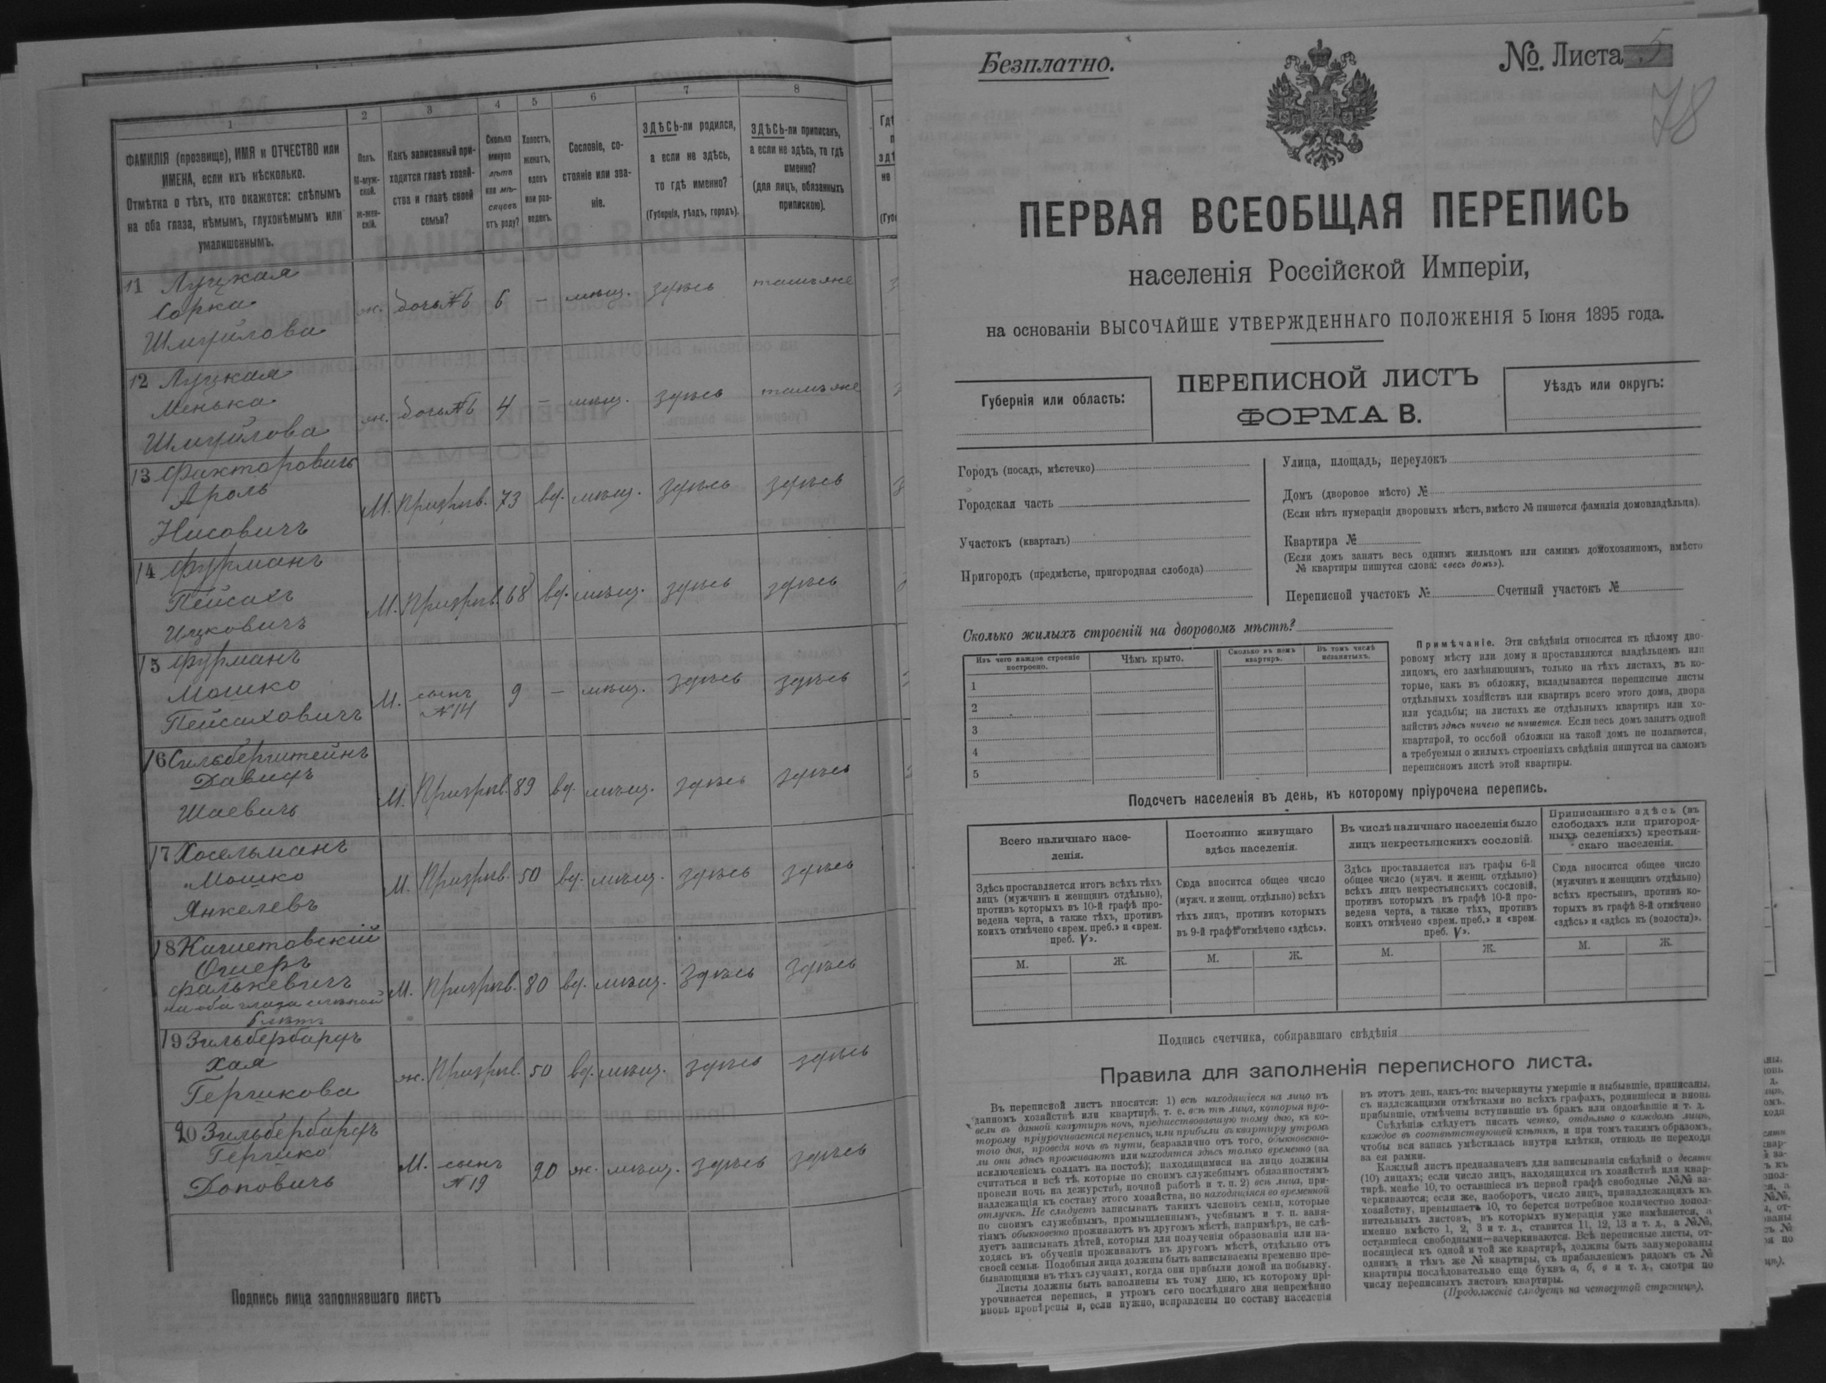 1 2 3 4 5 6 7 8
ФАМИЛІЯ (прозвище), ИМЯ и ОТЧЕСТВО или ИМЕНА, если ихъ нѣсколько.
Отмѣтка о тѣхъ, кто окажется: слѣпымъ на оба глаза, нѣмымъ, глухонѣмымъ или умалишеннымъ.
Полъ.
М-муж-
ской.
ж-жен-
скій.
Какъ записанный при-
ходится главѣ хозяй-
ства и главѣ своей
семьи?
Сколько
минуло
лѣтъ
или мѣ-
сяцевъ
отъ роду?
Холостъ,
женатъ,
вдовъ
или раз-
веденъ.
Сословіе, со-
стояніе или зва-
ніе.
ЗДѢСЬ-ли родился,
а если не здѣсь,
то гдѣ именно?
(Губернія, уѣздъ, городъ).
ЗДѢСЬ-ли приписанъ,
а если не здѣсь, то гдѣ
именно?
(для лицъ, обязанныхъ
припискою).
11 Луцкая
Сорка
Шмуйлова
ж. 6 – мѣщ. здѣсь тамъ же
12 Луцкая
Менька
Шмуйлова
ж. 4 – мѣщ. здѣсь тамъ же
13 Факторовичъ
Ароль
Нисовичъ
М. Призрѣв. 73 вд. мѣщ. здѣсь здѣсь
14 Фурманъ
Пейсахъ
Ицковичъ
М. Призрѣв. 68 вд. мѣщ. здѣсь здѣсь
15 Фурманъ
Мошко
Пейсаховичъ
М. сынъ №14 9 – мѣщ. здѣсь здѣсь
16 Сильберштейнъ
Давидъ
Шаевичъ
М. Призрѣв. 89 вд. мѣщ. здѣсь здѣсь
17 Хосельманъ
Мошко
Янкелевъ
М. Призрѣв. 50 вд. мѣщ. здѣсь здѣсь
18
Ошеръ
Фалькевичъ
на оба глаза слѣпой
М. Призрѣв. 80 вд. мѣщ. здѣсь здѣсь
19 Зильбербардъ
Хая
Гершкова
ж. Призрѣв. 50 вд. мѣщ. здѣсь здѣсь
20 Зильбербардъ
Гершко
М. сынъ №19 20 ж. мѣщ. здѣсь здѣсь
Подпись лица заполнявшаго листъ
Безплатно.
№ Листа 5
78
ПЕРВАЯ ВСЕОБЩАЯ ПЕРЕПИСЬ
населенія Россійской Имперіи,
на основаніи ВЫСОЧАЙШЕ УТВЕРЖДЕННАГО ПОЛОЖЕНІЯ 5 Іюня 1895 года.
Губернія или область:
ПЕРЕПИСНОЙ ЛИСТЪ
ФОРМА В.
Уѣздъ или округъ:
Городъ (посадъ, мѣстечко)
Городская часть
Участокъ (кварталъ)
Пригородъ (предмѣстье, пригородная слобода)
Улица, площадь, переулокъ
Домъ (дворовое мѣсто) №
(Если нѣтъ нумераціи дворовыхъ мѣстъ, вмѣсто № пишется фамилія домовладѣльца).
Квартира №
(Если домъ занятъ весь однимъ жильцомъ или самимъ домохозяиномъ, вмѣсто
№ квартиры пишутся слова: «весь домъ»).
Переписной участокъ № Счетный участокъ №
Сколько жилыхъ строеній на дворовомъ мѣстѣ?
Изъ чего каждое строеніе
построено.
Чѣмъ крыто.
Сколько въ немъ
квартиръ.
Въ томъ числѣ
незанятыхъ.
1
2
3
4
5
Примѣчаніе. Эти свѣдѣнія относятся къ цѣлому дво-
ровому мѣсту или дому и проставляются владѣльцемъ или
лицомъ, его замѣняющимъ, только на тѣхъ листахъ, въ ко-
торые, какъ въ обложку, вкладываются переписные листы
отдѣльныхъ хозяйствъ или квартиръ всего этого дома, двора
или усадьбы; на листахъ же отдѣльныхъ квартиръ или хо-
зяйствъ здѣсь ничего не пишется. Если весь домъ занятъ одной
квартирой, то особой обложки на такой домъ не полагается,
а требуемыя о жилыхъ строеніяхъ свѣдѣнія пишутся на самомъ
переписномъ листѣ этой квартиры.
Подсчетъ населенія въ день, къ которому пріурочена перепись.
Всего наличнаго насе-
ленія.
Постоянно живущаго
здѣсь населенія.
Въ числѣ наличнаго населенія было
лицъ некрестьянскихъ сословій.
Приписаннаго здѣсь (въ
слободахъ или пригород-
ныхъ селеніяхъ) крестьян-
скаго населенія.
Здѣсь проставляется итогъ всѣхъ тѣхъ
лицъ (мужчинъ и женщинъ отдѣльно),
противъ которыхъ въ 10-й графѣ про-
ведена черта, а также тѣхъ, противъ
коихъ отмѣчено «врем. преб.» и «врем.
преб. V».
Сюда вносится общее число
(мужч. и женщ. отдѣльно) всѣхъ
тѣхъ лицъ, противъ которыхъ
въ 9-й графѣ отмѣчено «здѣсь».
Здѣсь проставляется изъ графы 6-й
общее число (мужч. и женщ. отдѣльно)
всѣхъ лицъ некрестьянскихъ сословій,
противъ которыхъ въ графѣ 10-й про-
ведена черта, а также тѣхъ, противъ
коихъ отмѣчено «врем. преб.» и «врем.
преб. V».
Сюда вносится общее число
(мужчинъ и женщинъ отдѣльно)
всѣхъ крестьянъ, противъ ко-
торыхъ въ графѣ 8-й отмѣчено
«здѣсь» и «здѣсь къ (волости)».
М. Ж. М. Ж. М. Ж. М. Ж.
Подпись счетчика, собиравшаго свѣдѣнія
Правила для заполненія переписного листа.
Въ переписной листъ вносятся: 1) всѣ находящіеся на лицо въ
данномъ хозяйствѣ или квартирѣ, т. е. всѣ тѣ лица, которыя про-
вели въ данной квартирѣ ночь, предшествовавшую тому дню, къ ко-
торому пріурочивается перепись, или прибыли въ квартиру утромъ
того дня, проведя ночь въ пути, безразлично отъ того, обыкновенно-
ли они здѣсь проживаютъ или находятся здѣсь только временно (за
исключеніемъ солдатъ на постоѣ); находящимися на лицо должны
считаться и всѣ тѣ, которые по своимъ служебнымъ обязанностямъ
провели ночь на дежурствѣ, ночной работѣ и т. п. 2) всѣ лица, при-
надлежащія къ составу этого хозяйства, но находящіяся во временной
отлучкѣ. Не слѣдуетъ записывать такихъ членовъ семьи, которые
по своимъ служебнымъ, промышленнымъ, учебнымъ и т. п. заня-
тіямъ обыкновенно проживаютъ въ другомъ мѣстѣ, напримѣръ, не слѣ-
дуетъ записывать дѣтей, которыя для полученія образованія или на-
ходясь въ обученіи проживаютъ въ другомъ мѣстѣ, отдѣльно отъ
своей семьи. Подобныя лица должны быть записываемы временно пре-
бывающими въ тѣхъ случаяхъ, когда они прибыли домой на побывку.
Листы должны быть заполнены къ тому дню, къ которому прі-
урочивается перепись, и утромъ сего послѣдняго дня непремѣнно
вновь провѣрены и, если нужно, исправлены по составу населенія
въ этотъ день, какъ-то: вычеркнуты умершіе и выбывшіе, приписаны,
съ надлежащими отмѣтками во всѣхъ графахъ, родившіеся и вновь
прибывшіе, отмѣчены вступившіе въ бракъ или овдовѣвшіе и т. д.
Свѣдѣнія слѣдуетъ писать четко, отдѣльно о каждомъ лицѣ,
каждое въ соотвѣтствующей клѣткѣ, и при томъ такимъ образомъ,
чтобы вся запись умѣстилась внутри клѣтки, отнюдь не переходя
за ея рамки.
Каждый листъ предназначенъ для записыванія свѣдѣній о десяти
(10) лицахъ; если число лицъ, находящихся въ хозяйствѣ или квар-
тирѣ, менѣе 10, то оставшіеся въ первой графѣ свободные №№ за-
черкиваются; если же, наоборотъ, число лицъ, принадлежащихъ къ
хозяйству, превышаетъ 10, то берется потребное количество допол-
нительныхъ листовъ, въ которыхъ нумерація уже измѣняется, а
именно вмѣсто 1, 2, 3 и т. д., ставится 11, 12, 13 и т. д., а №№,
оставшіеся свободными—зачеркиваются. Всѣ переписные листы, от-
носящіеся къ одной и той же квартирѣ, должны быть занумерованы
однимъ и тѣмъ же № квартиры, съ прибавленіемъ рядомъ съ №
квартиры послѣдовательно еще буквъ а, б, в и т. д., смотря по
числу переписныхъ листовъ квартиры.
(Продолженіе слѣдуетъ на четвертой страницѣ).